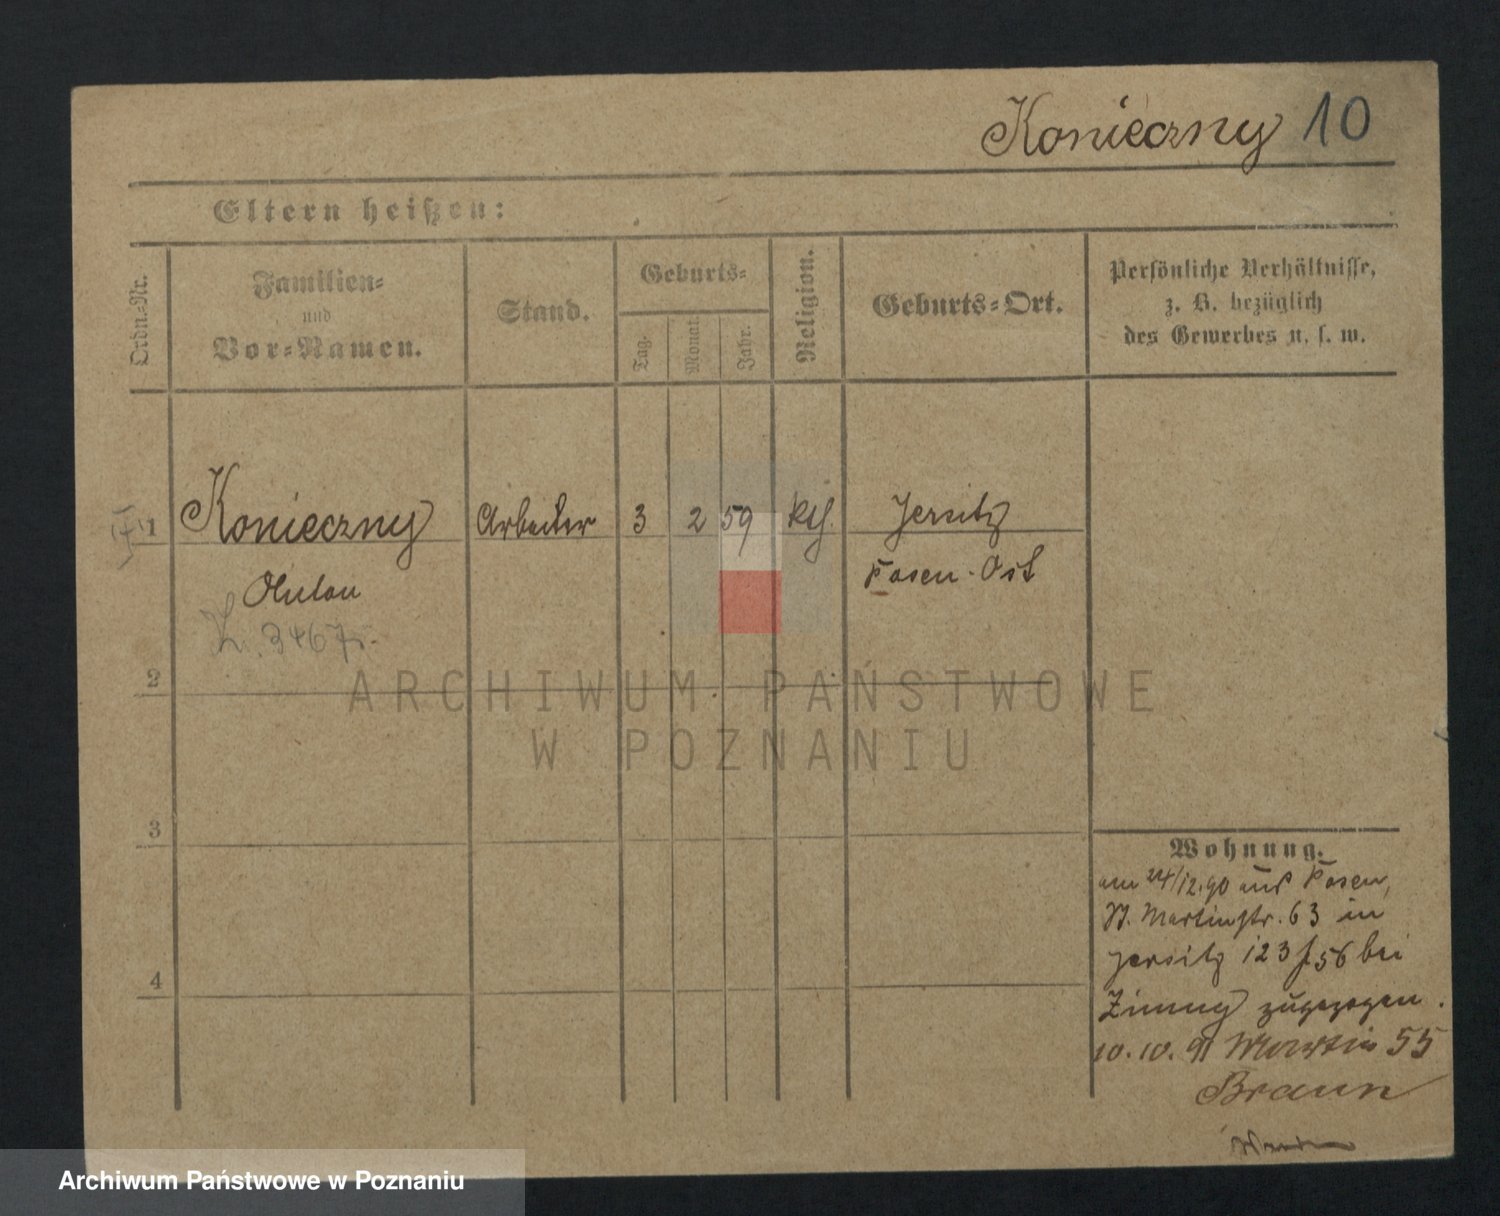 Konieczny 10
Eltern heißen:
Ordn.-Nr.
Familien-
und
Vor-Namen.
Stand.
Geburts-
Tag.
Monat.
Jahr.
Religion.
Geburts-Ort.
Persönliche Verhältnisse,
z. B. bezüglich
des Gewerbes u. s. w.
1 Konieczny Arbeiter 3 2 59 kth. Jersitz
Anton Posen-Ost
2
3
4
ARCHIWUM PAŃSTWOWE
W POZNANIU
Wohnung.
am 24/12.90 aus Posen,
St. Martinstr. 63 in
Jersitz 123 56 bei
zugezogen.
10.10.91 Martin 55
Braun
Archiwum Państwowe w Poznaniu